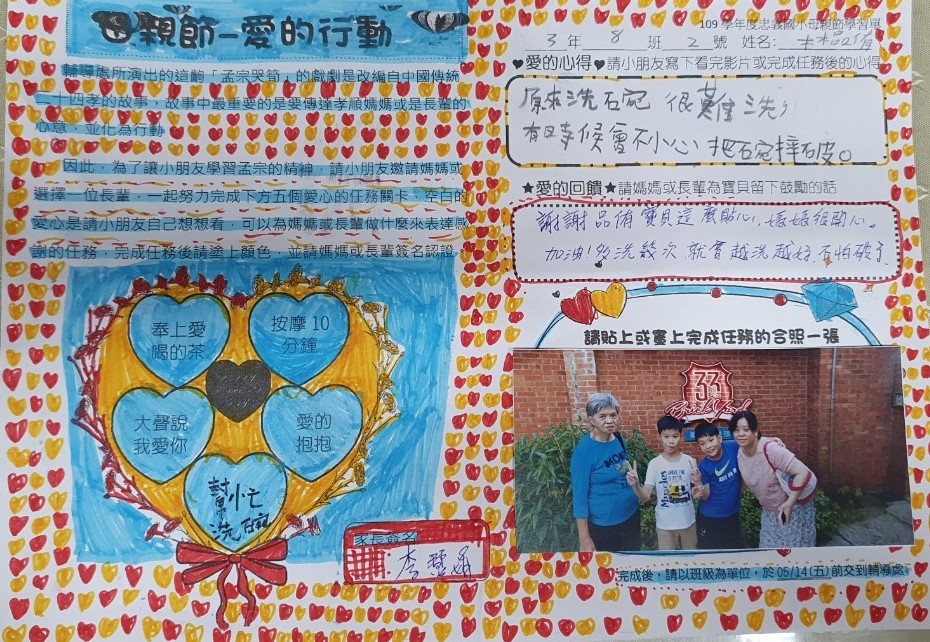 母親節－愛的行動
輔導處所演出的這齣「孟宗哭筍」的戲劇是改編自中國傳統
二十四孝的故事，故事中最重要的是要傳達孝順媽媽或是長輩的
心意，並化為行動
因此，為了讓小朋友學習孟宗的精神，請小朋友邀請媽媽或
選擇一位長輩，一起努力完成下方五個愛心的任務關卡，空白的
愛心是請小朋友自己想想看，可以為媽媽或長輩做什麼來表達感
謝的任務，完成任務後請塗上顏色，並請媽媽或長輩簽名認證
奉上愛
喝的茶
按摩10
分鐘
大聲說
我愛你
愛的
抱抱
幫忙
洗碗
家長簽名
李
109學年度忠義國小母親節學習單
3年8班2號 姓名：
♥愛的心得♥請小朋友寫下看完影片或完成任務後的心得
原來洗碗很難洗，
有時候會不小心把碗摔破。
★愛的回饋★請媽媽或長輩為寶貝留下鼓勵的話
謝謝品侑寶貝這麼貼心，媽媽很開心。
加油！多洗幾次就會越洗越好，不怕破了
請貼上或畫上完成任務的合照一張
33
Brick Yard
完成後，請以班級為單位，於05/14(五)前交到輔導處